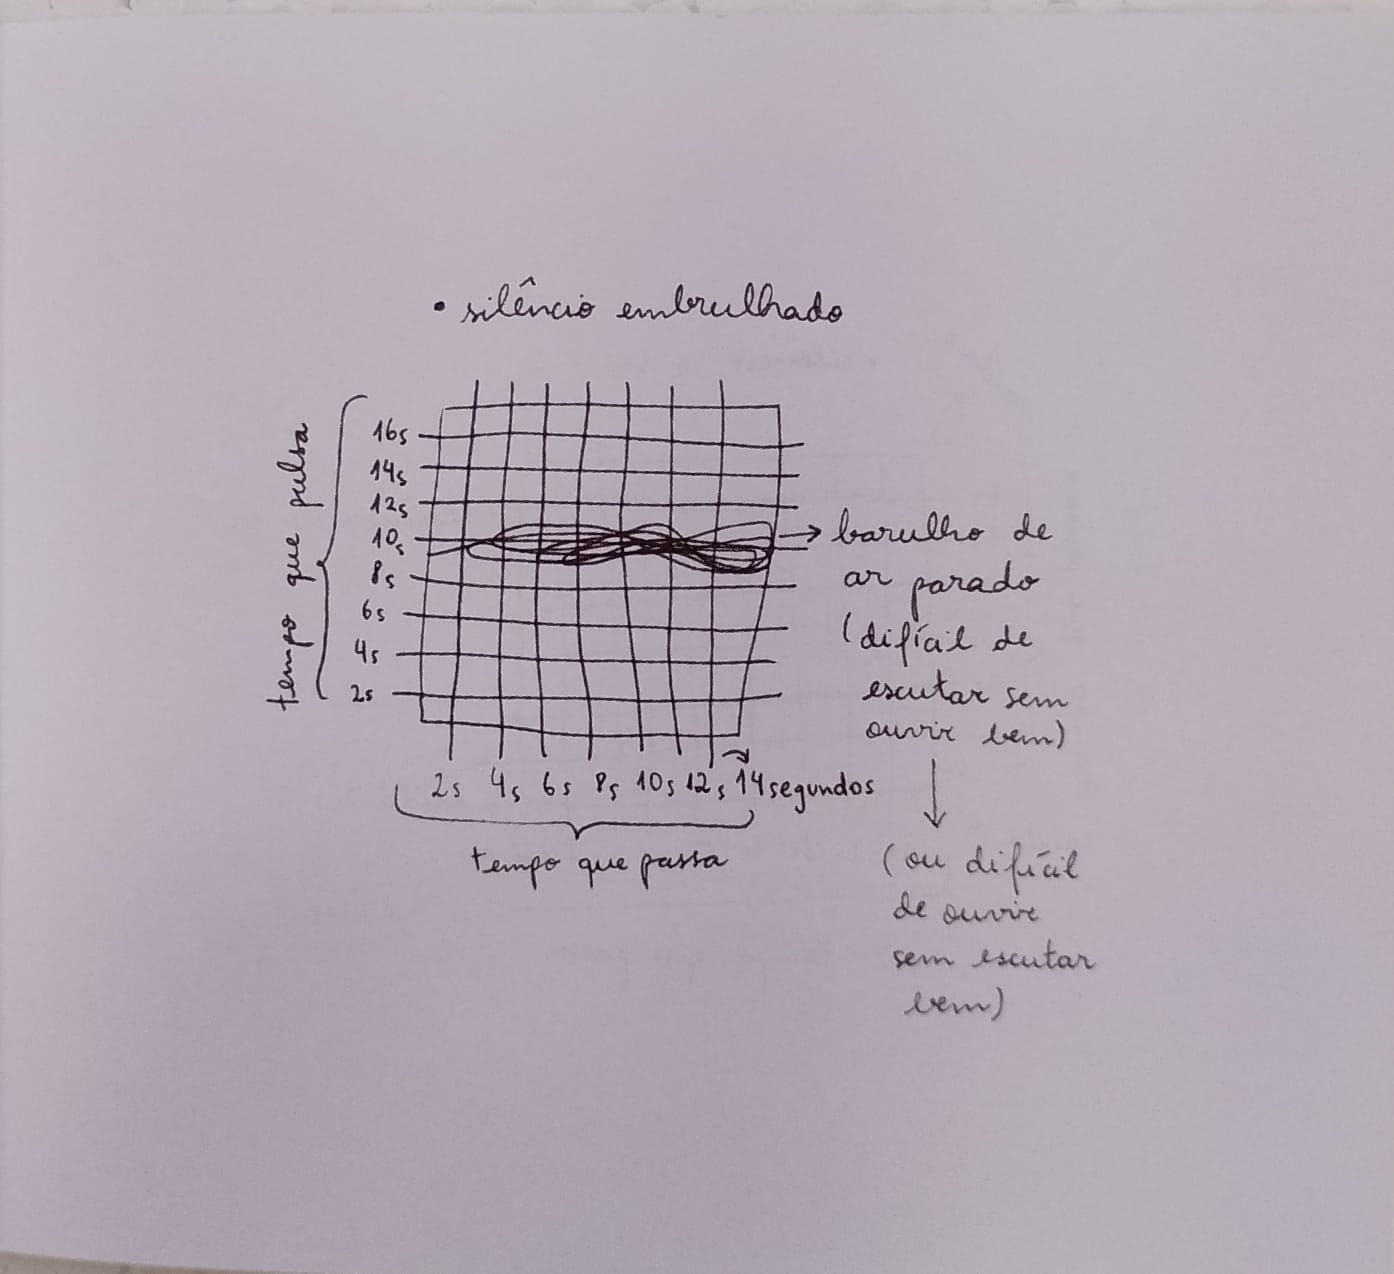 • silêncio embrulhado
tempo que pulsa
16s
14s
12s
10s
8s
6s
4s
2s
2s 4s 6s 8s 10s 12s 14 segundos
tempo que passa
barulho de
ar parado
(difícil de
escutar sem
ouvir bem)
(ou difícil
de ouvir
sem escutar
bem)